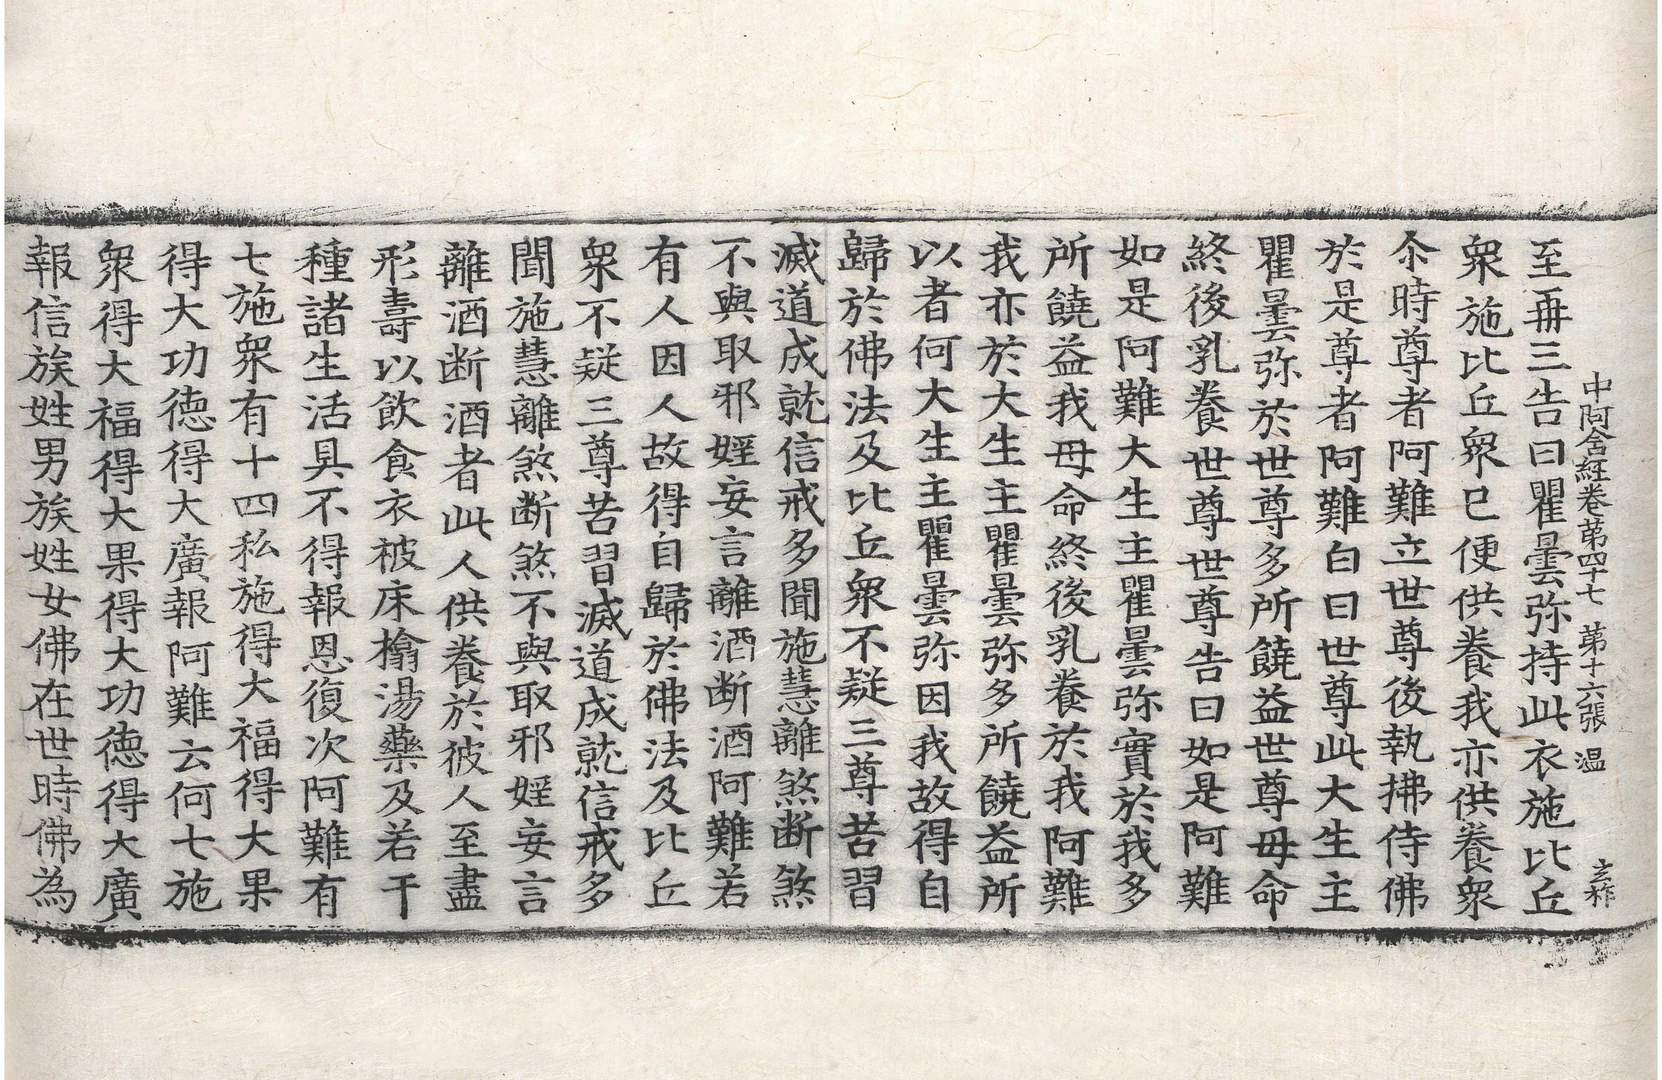 中阿含経卷第四十七 第十六張 温 玄祚
至再三告曰瞿曇弥持此衣施比丘
衆施比丘衆已便供養我亦供養衆
尒時尊者阿難立世尊後執拂侍佛
於是尊者阿難白曰世尊此大生主
瞿曇弥於世尊多所饒益世尊母命
終後乳養世尊世尊告曰如是阿難
如是阿難大生主瞿曇弥實於我多
所饒益我母命終後乳養於我阿難
我亦於大生主瞿曇弥多所饒益所
以者何大生主瞿曇弥因我故得自
歸於佛法及比丘衆不疑三尊苦習
滅道成就信戒多聞施慧離煞断煞
不與取邪婬妄言離酒断酒阿難若
有人因人故得自歸於佛法及比丘
衆不疑三尊苦習滅道成就信戒多
聞施慧離煞断煞不與取邪婬妄言
離酒断酒者此人供養於彼人至盡
形壽以飲食衣被床榻湯藥及若干
種諸生活具不得報恩復次阿難有
七施衆有十四私施得大福得大果
得大功徳得大廣報阿難云何七施
衆得大福得大果得大功徳得大廣
報信族姓男族姓女佛在世時佛為